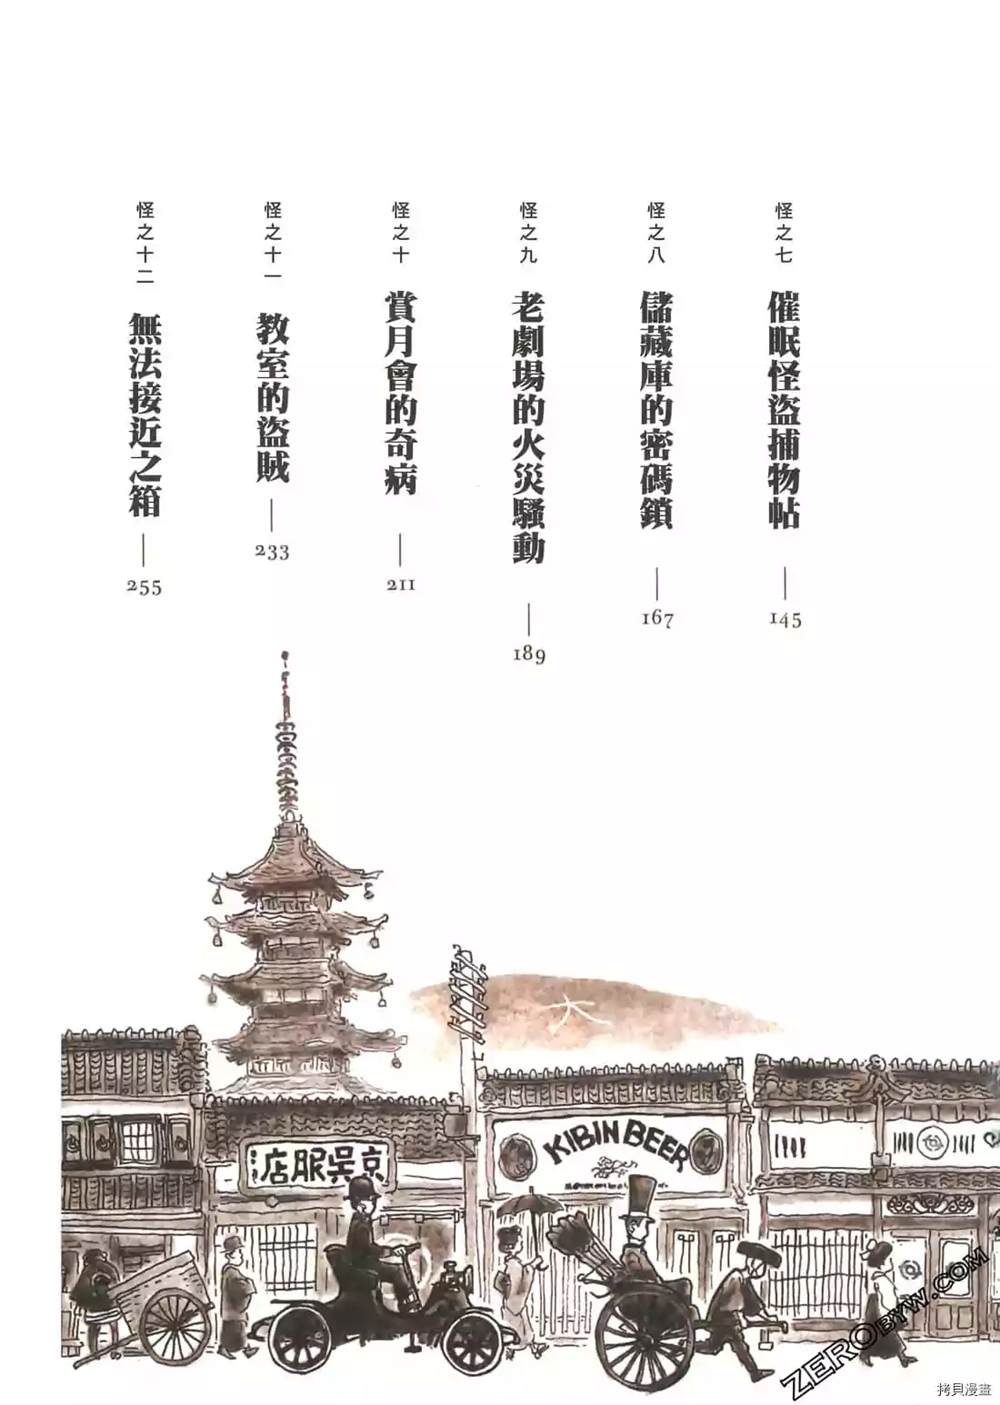 怪之七 催眠怪盜捕物帖 145
怪之八 儲藏庫的密碼鎖 167
怪之九 老劇場的火災騷動 189
怪之十 賞月會的奇病 211
怪之十一 教室的盜賊 233
怪之十二 無法接近之箱 255
大
京呉服店
KIBIN BEER
ZEROBYW.COM
拷貝漫畫